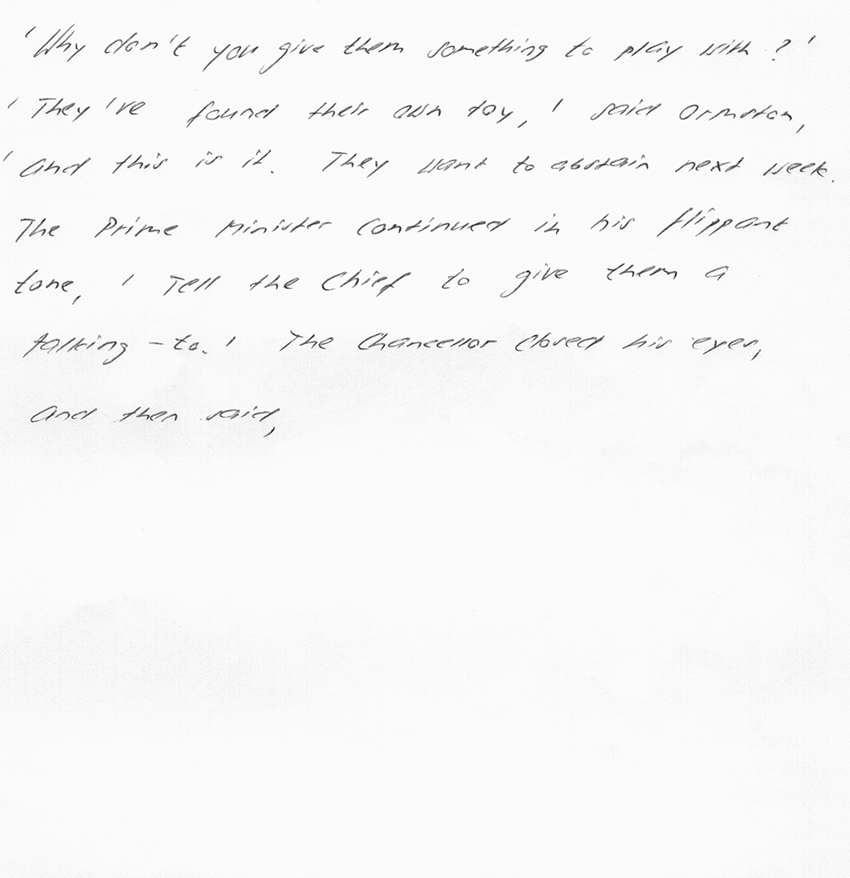 'Why don't you give them something to play with?'
'They've found their own toy,' said Ormston,
'and this is it. They want to abstain next week.
The Prime Minister continued in his flippant
tone, 'Tell the Chief to give them a
talking-to.' The Chancellor closed his eyes,
and then said,